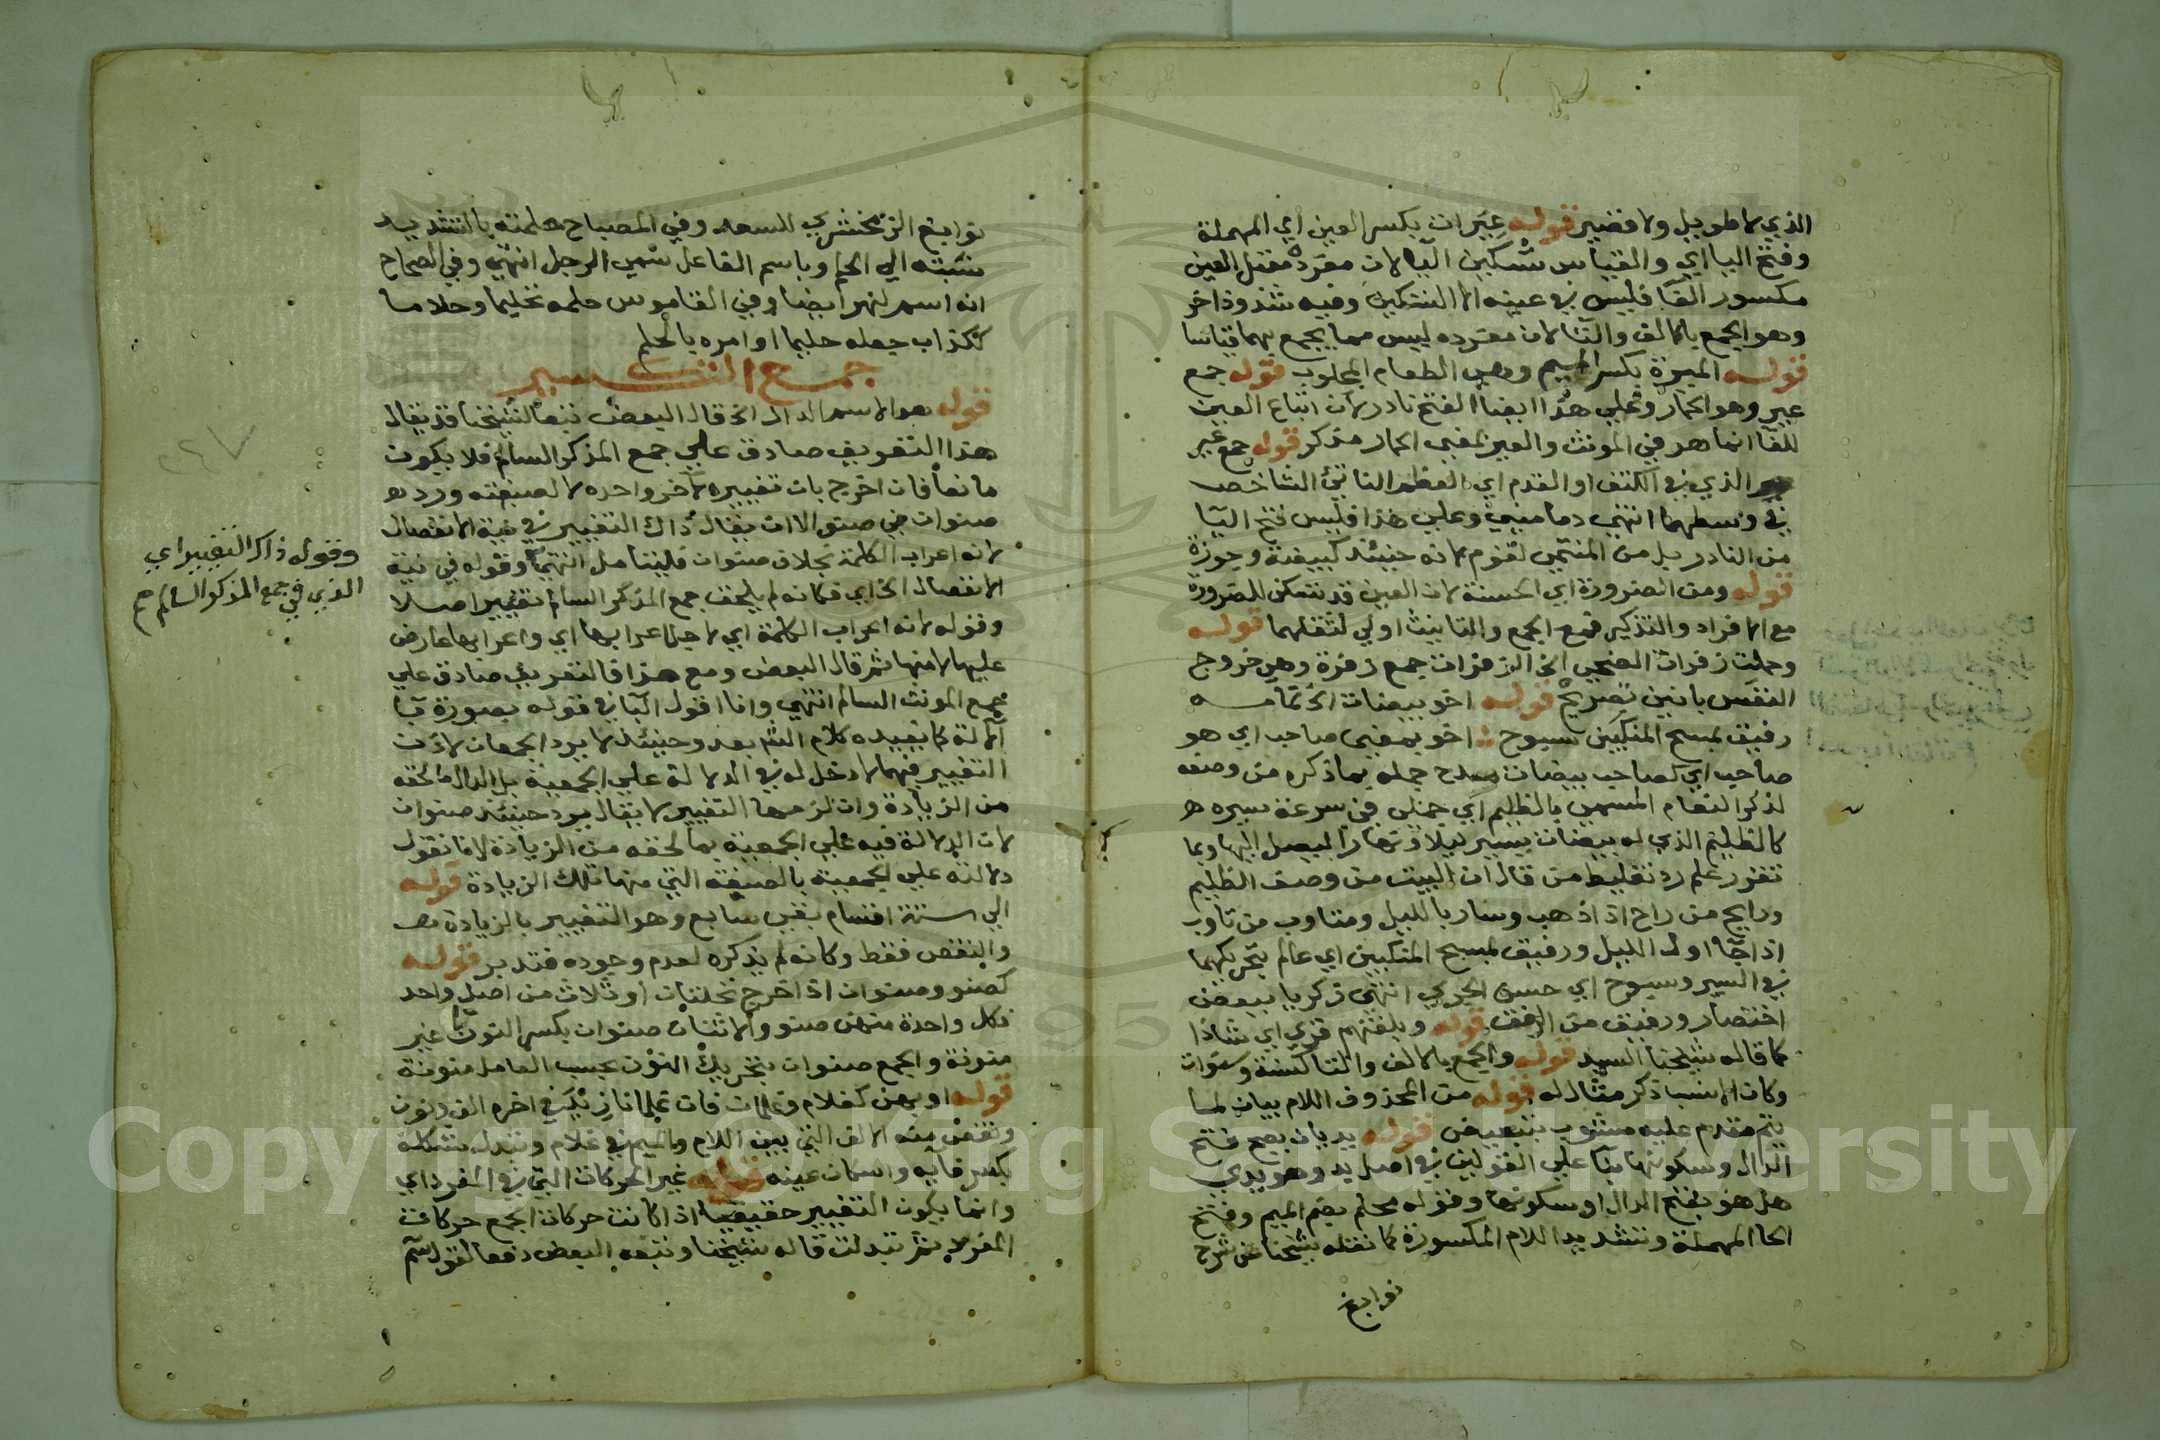 الذي لا طويل ولا قصير قوله عيرات بكسر العين اي المهملة
وفتح الياء اي والقياس تسكين اليا لان مفرده معتل العين
مكسور الفا فليس في عينه الا التسكين وفيه شذوذ اخر
وهو الجمع بالالف والتا لان مفرده ليس مما يجمع بهما قياسا
قوله الميرة بكسر الميم وهي الطعام المجلوب قوله جمع
عير وهو الحمار وعلي هذا ايضا الفتح نادر لان اتباع العين
للفا انما هو في المونث والعير بمعني الحمار مذكر قوله جمع عير
الذي في الكتف او القدم اي العظم الناتئ الشاخص
في وسطهما انتهي دماميني وعلي هذا فليس فتح اليا
من النادر بل من المنتمي لقوم لانه حينئذ كبيضة وجوزة
قوله ومن الضرورة اي الحسنة لان العين قد تسكن للضرورة
مع الافراد والتذكير فمع الجمع والتانيث اولي لثقلهما قوله
وحملت زفرات الضحي الخ الزفرات جمع زفرة وهي خروج
النفس بانين تصريح قوله اخو بيضات الخ تمامه
رفيق بمسح المنكبين سبوح اخو بمعني صاحب اي هو
صاحب اي كصاحب بيضات مدح جمله بما ذكره من وصفه
لذكر النعام المسمي بالظليم اي جملي في سرعة سيره
كالظليم الذي له بيضات يسير ليلا ونهارا ليصل اليها وبما
تقرر علم رد تغليط من قال ان البيت من وصف الظليم
ورايح من راح اذا ذهب وسار بالليل ومتاوب من تاوب
اذا جا اول الليل ورفيق بمسح المنكبين اي عالم بتحريكهما
في السير وسبوح اي حسن الجري انتهي زكريا ببعض
اختصار ورفيق من الرفق قوله وبلغتهم قري اي شاذا
كما قاله شيخنا السيد قوله والجمع بالالف والتا كسنة وسنوات
وكان الانسب ذكر مثال له قوله من المحذوف اللام بيان لما
يتم مقدم عليه مشوب بتبعيض قوله يديان بصح فتح
الدال وسكونها بنا علي القولين في اصل يد وهو يدي
هل هو بفتح الدال او سكونها وقوله محلم بضم الميم وفتح
الحا المهملة وتشديد اللام المكسورة كما نقله شيخنا عن شرح
نوابغ
نوابغ الزمخشري للسعد وفي المصباح حلمته بالتشديد
نسبته الي الحلم وباسم الفاعل سمي الرجل انتهي وفي الصحاح
انه اسم نهر ايضا وفي القاموس حلمه تحليما وحلاما
ككذاب جعله حليما او امره بالحلم
جمع التكسير
قوله هو الاسم الدال الخ قال البعض تبعا لشيخنا قد يقال
هذا التعريف صادق علي جمع المذكر السالم فلا يكون
مانعا فان اخرج بان تغييره لاخر واحده لا لصيغته ورد
صنوان جي صنو الا ان يقال ذاك التغيير في نية الانفصال
لانه اعراب الكلمة بخلاف صنوان فليتامل انتهي وقوله في نية
الانفصال الخ اي فكانه لم يلحق جمع المذكر السالم تغيير اصلا
وقوله لانه اعراب الكلمة اي لاجل اعرابها اي واعرابها عارض
عليها لا منها ثم قال البعض ومع هذا فالتعريف صادق علي
جمع المونث السالم انتهي وانا اقول البا في قوله بصورة با
الالة كما يفيده كلام الشم بعد وحينئذ لا يرد الجمعان لان
التغيير فيهما لا دخل له في الدلالة علي الجمعية بل الدال ما لحقه
من الزيادة وان لزمها التغيير لا يقال يرد حينئذ صنوان
لان الدلالة فيه علي الجمعية بما لحقه من الزيادة لانا نقول
دلالته علي الجمعية بالصيغة التي منها تلك الزيادة قوله
الي ستة اقسام بقي سابع وهو التغيير بالزيادة
والنقص فقط وكانه لم يذكره لعدم وجوده فتدبر قوله
كصنو وصنوان اذا خرج نخلتان او ثلاث من اصل واحد
فكل واحدة منهن صنو والاثنان صنوان بكسر النون غير
منونة والجمع صنوان بتحريك النون بحسب العامل منونة
قوله او بهن كغلام وغلمان فان غلمانا زيد في اخره الف ونون
ونقص منه الالف التي بين اللام والميم في غلام وتبدل شكله
بكسر فايه واسكان عينه قوله غير الحركات التي في المفرد اي
وانما يكون التغيير حقيقيا اذا كانت حركات الجمع حركات
المفرد ثم تبدلت قاله شيخنا وتبعه البعض دفعا لقول سم
وقوله ذاك التغيير اي
الذي في جمع المذكر السالم صح